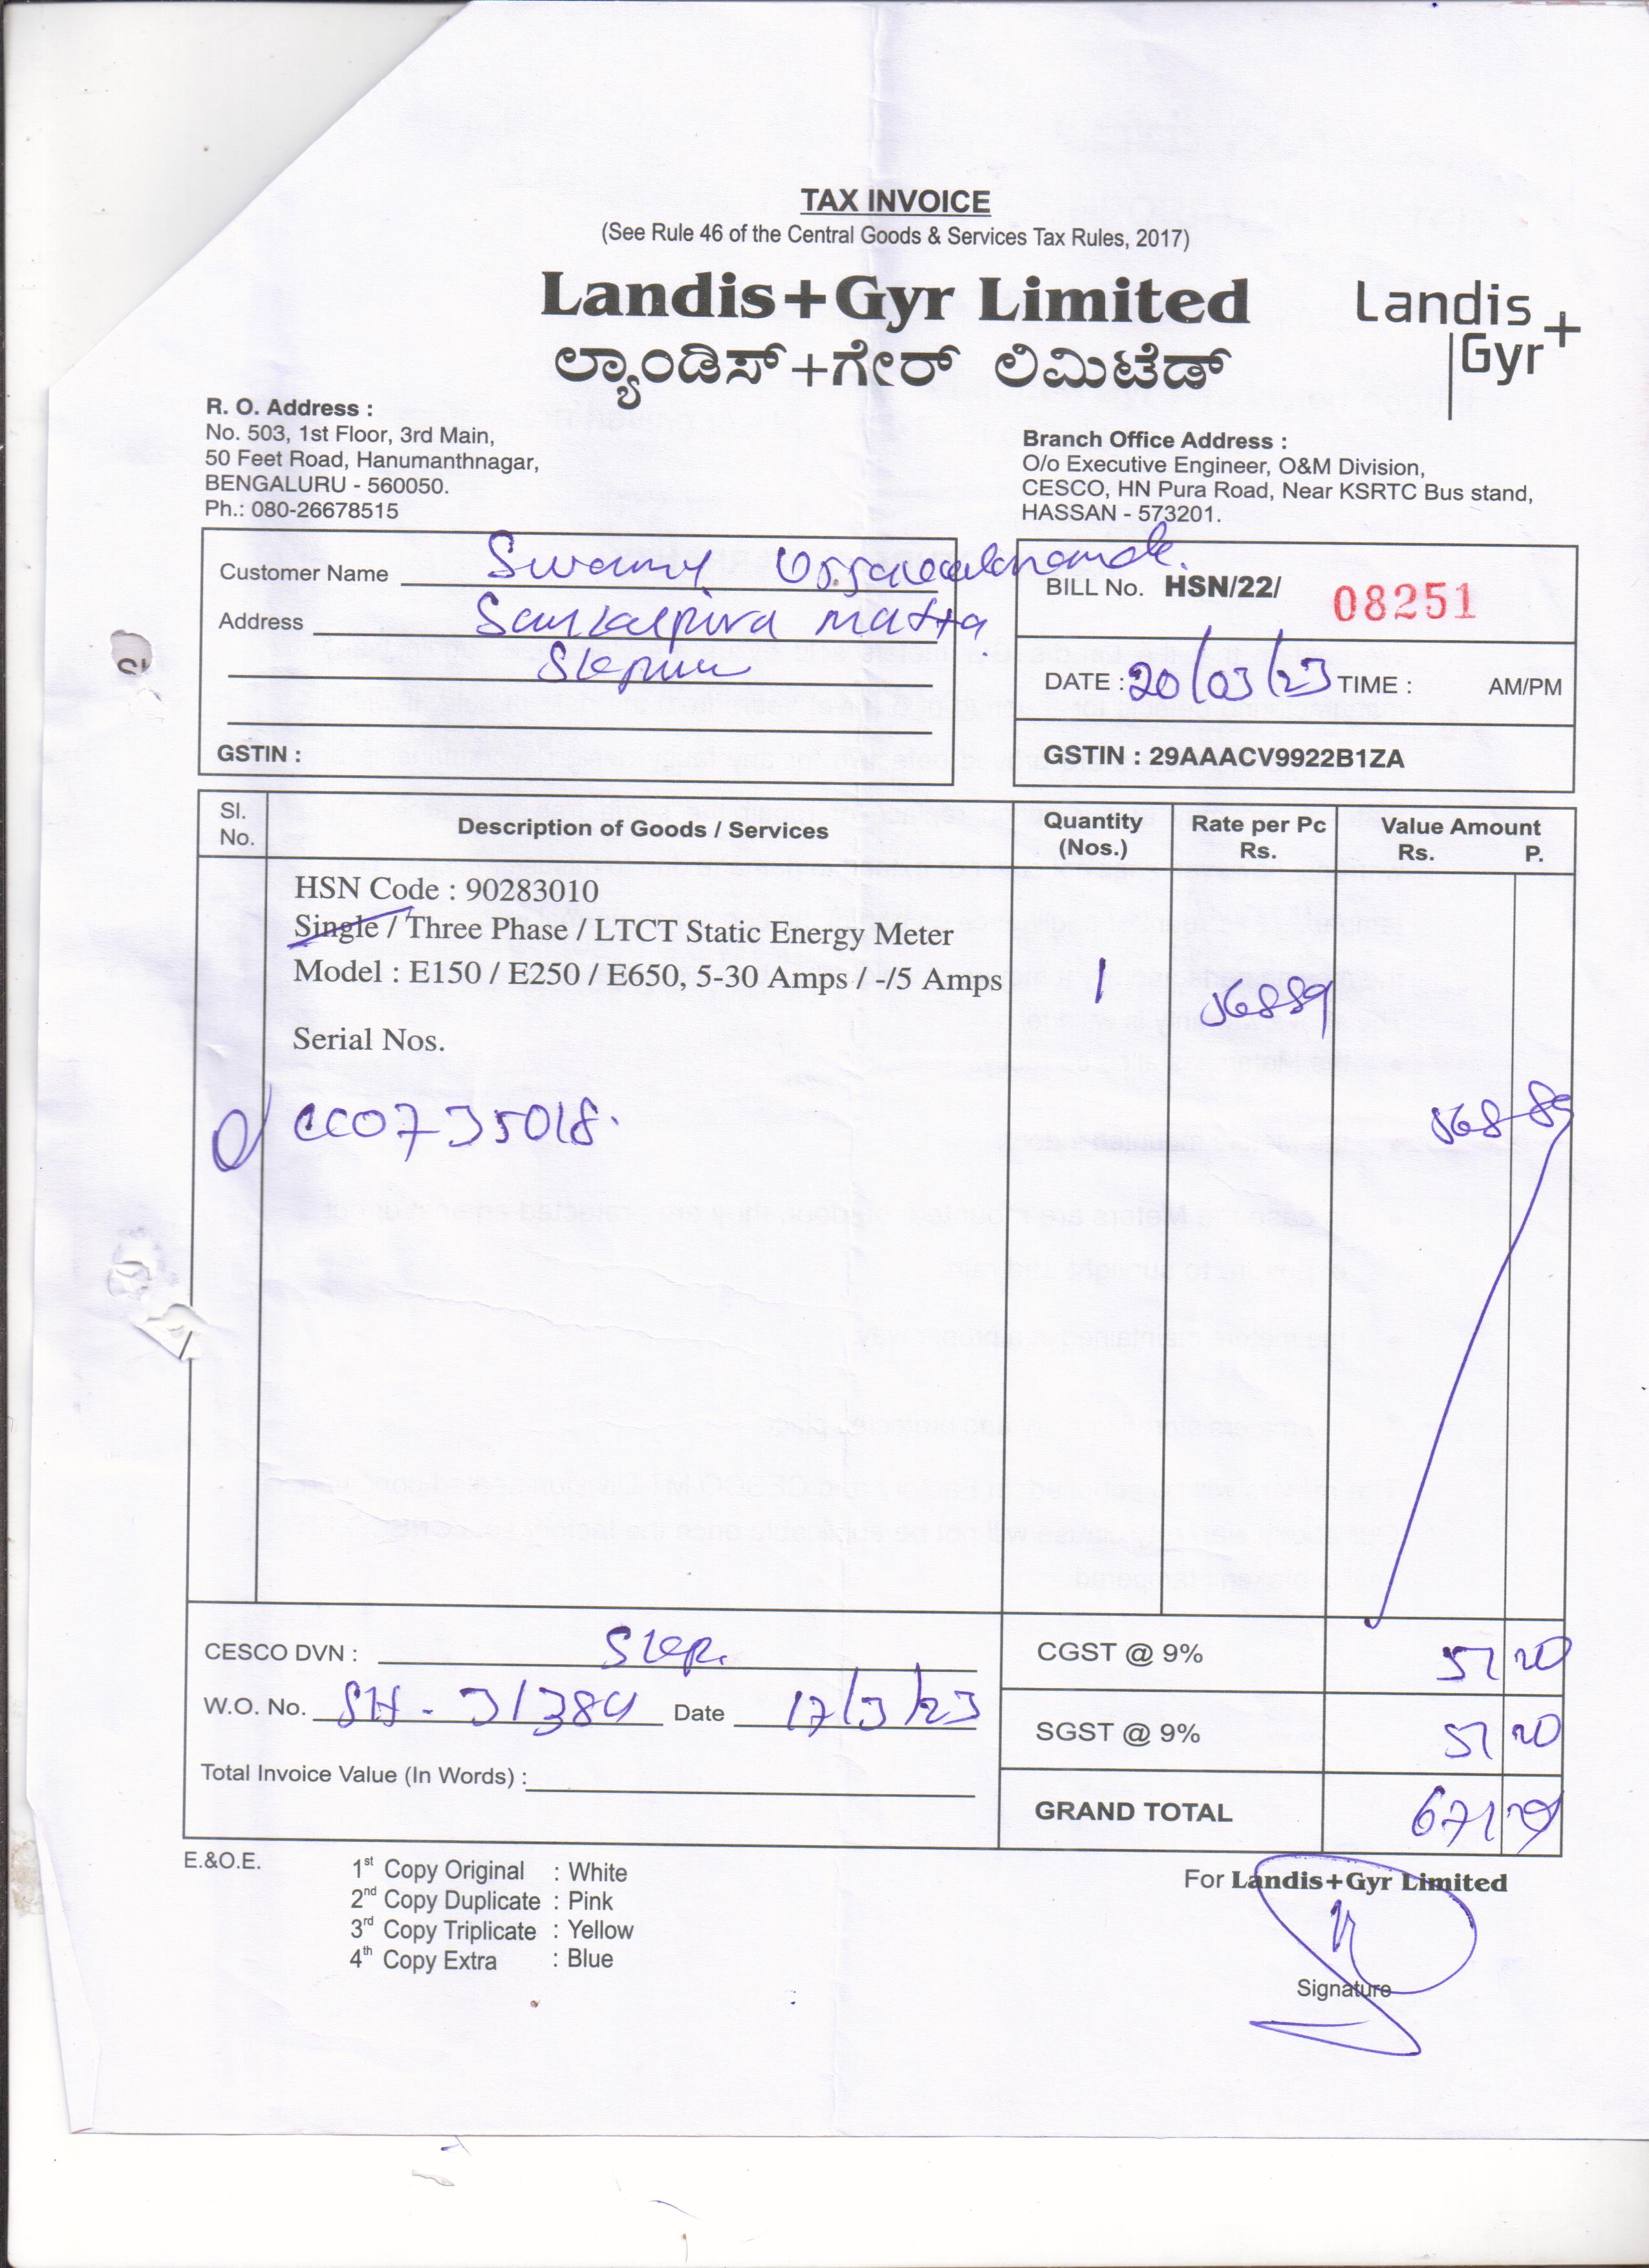 TAX INVOICE
(See Rule 46 of the Central Goods & Services Tax Rules, 2017)
Landis+Gyr Limited
ಲ್ಯಾಂಡಿಸ್+ಗೇರ್ ಲಿಮಿಟೆಡ್
Landis
Gyr+
R. O. Address :
No. 503, 1st Floor, 3rd Main,
50 Feet Road, Hanumanthnagar,
BENGALURU - 560050.
Ph.: 080-26678515
Branch Office Address :
O/o Executive Engineer, O&M Division,
CESCO, HN Pura Road, Near KSRTC Bus stand,
HASSAN - 573201.
Customer Name Swamy
Address
GSTIN :
BILL No. HSN/22/ 08251
DATE : 20/03/23 TIME : AM/PM
GSTIN : 29AAACV9922B1ZA
Sl. No. Description of Goods / Services Quantity (Nos.) Rate per Pc Rs. Value Amount Rs. P.
HSN Code : 90283010
Single / Three Phase / LTCT Static Energy Meter
Model : E150 / E250 / E650, 5-30 Amps / -/5 Amps 1 56889
Serial Nos.
568 89
CESCO DVN :
W.O. No. Date 17/3/23
Total Invoice Value (In Words) :
CGST @ 9% 51 20
SGST @ 9% 51 20
GRAND TOTAL 671 29
E.&O.E.
1st Copy Original : White
2nd Copy Duplicate : Pink
3rd Copy Triplicate : Yellow
4th Copy Extra : Blue
For Landis+Gyr Limited
Signature